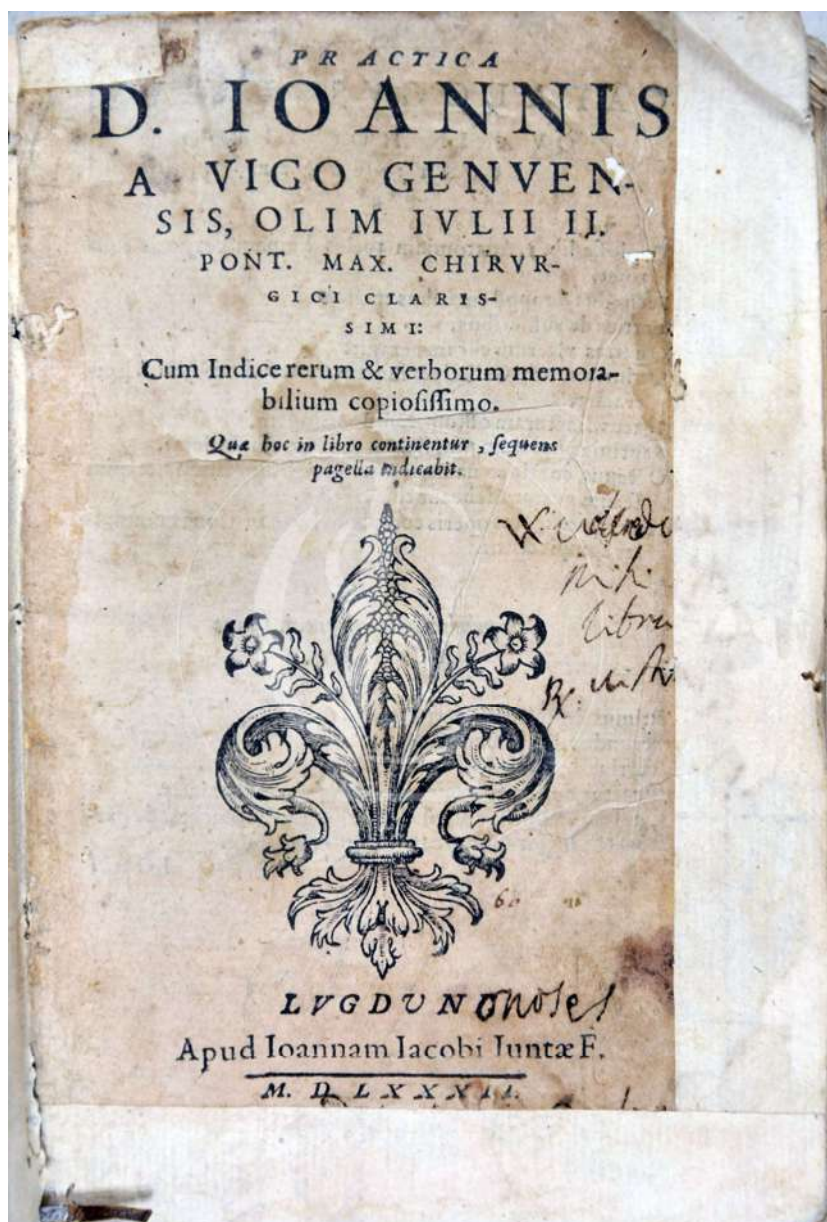 PRACTICA
D. IOANNIS
A VIGO GENVEN-
SIS, OLIM IVLII II.
PONT. MAX. CHIRVR-
GICI CLARIS-
SIMI:
Cum Indice rerum & verborum memora-
bilium copiosissimo.
Quæ hoc in libro continentur, sequens
pagella indicabit.
mihi
libru
LVGDVN
Apud Ioannam Iacobi Iuntæ F.
M. D. LXXXII.